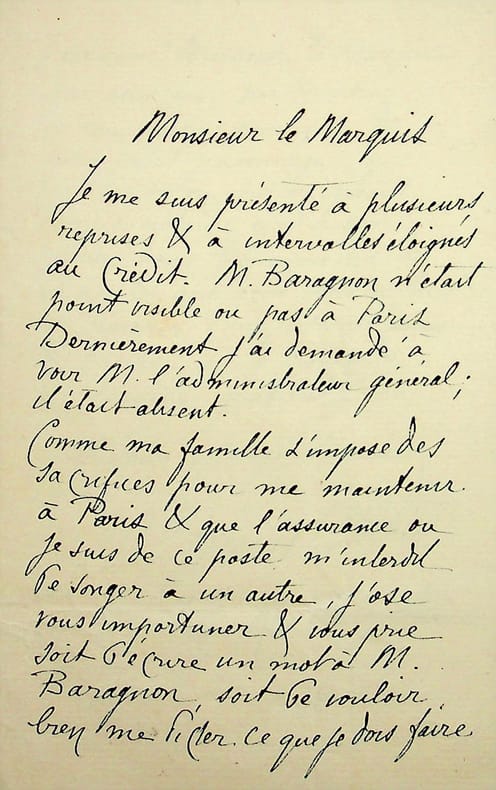 Monsieur le Marquis
Je me suis présenté à plusieurs
reprises & à intervalles éloignés
au Crédit. M. Baragnon n'était
point visible ou pas à Paris
Dernièrement j'ai demandé à
voir M. l'administrateur général;
il était absent.
Comme ma famille s'impose des
sacrifices pour me maintenir
à Paris & que l'assurance ou
je suis de ce poste m'interdit
de songer à un autre, j'ose
vous importuner & vous prie
soit d'écrire un mot à M.
Baragnon, soit de vouloir
bien me dicter ce que je dois faire